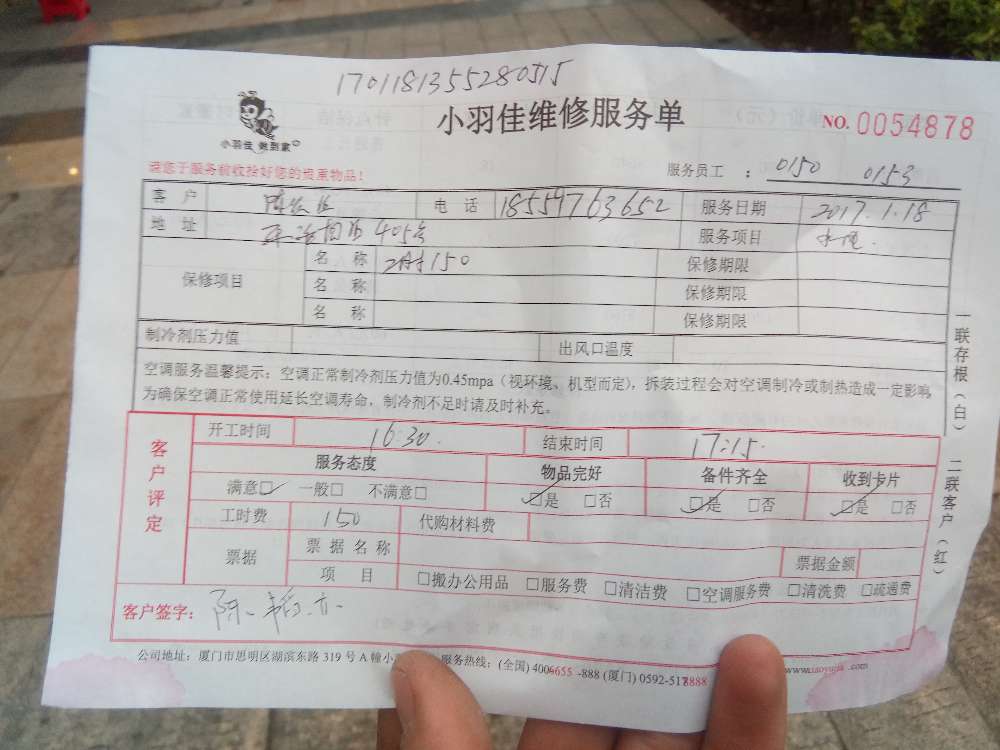 1701181355280515
小羽佳 做到家
小羽佳维修服务单
NO. 0054878
请您于服务前收拾好您的贵重物品！
服务员工 ： 0150 0153
客 户 电 话 18559763652 服务日期 2017.1.18
地 址 405 服务项目 水电
保修项目 名 称 150 保修期限
名 称 保修期限
名 称 保修期限
制冷剂压力值 出风口温度
空调服务温馨提示：空调正常制冷剂压力值为0.45mpa（视环境、机型而定），拆装过程会对空调制冷或制热造成一定影响，
为确保空调正常使用延长空调寿命，制冷剂不足时请及时补充。
客户评定
开工时间 16:30. 结束时间 17:15.
服务态度 物品完好 备件齐全 收到卡片
满意☑ 一般□ 不满意□ ☑是 □否 ☑是 □否 ☑是 □否
工时费 150 代购材料费
票据 票 据 名 称 票据金额
项 目 □搬办公用品 □服务费 □清洁费 □空调服务费 □清洗费 □疏通费
客户签字：
公司地址：厦门市思明区湖滨东路 319 号 A 幢小 服务热线：(全国) 4006655-888 (厦门) 0592-5178888 www.xiaoyujia.com
一联存根（白） 二联客户（红）